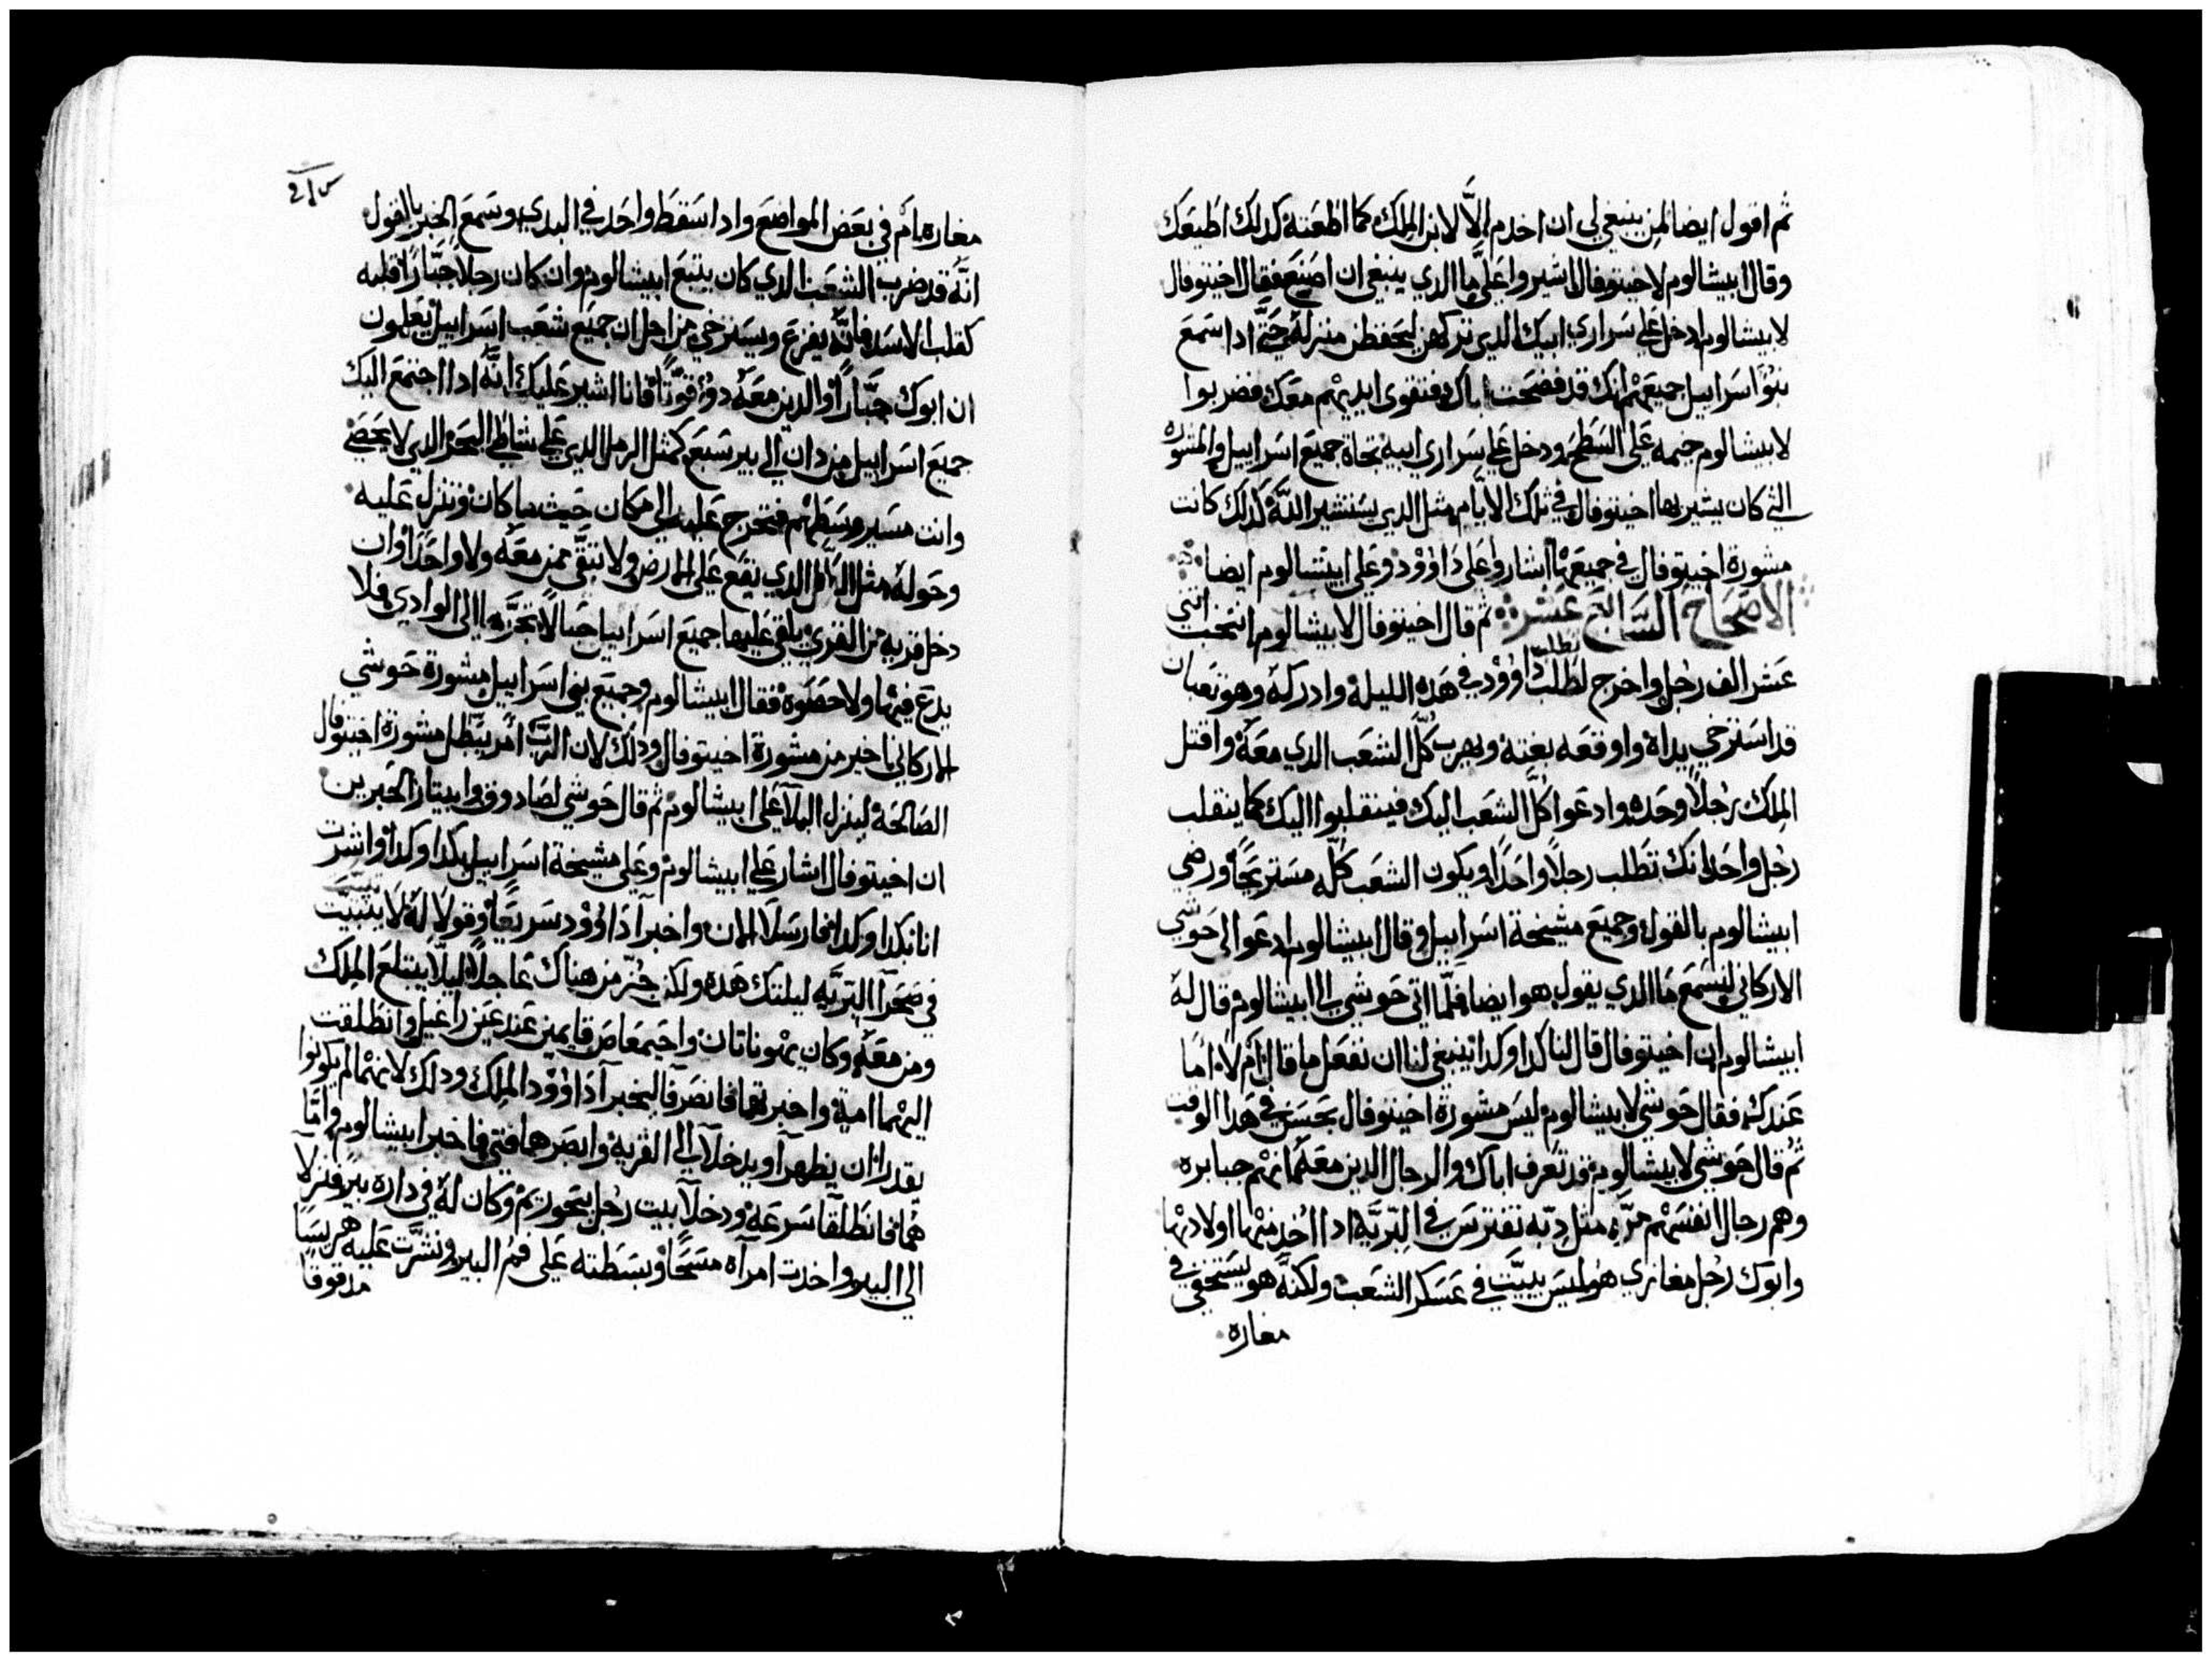 ثم اقول ايضا لمن ينبغي لي ان اخدم الَّا لابن الملك كما اطعته كدلك اطيعك
وقال ابيشالوم لاخيتوفال اشيروا علي ما الدي ينبغي ان اصنع فقال اخيتوفال
لابيشالوم ادخل علي سراري ابيك الدي تركهن ليحفظن منزله حتي ادا سمع
بنوا اسراييل جميعهم انك قد فضحت اباك فتقوي ايديهم معك فضربوا
لابيشالوم خيمه علي السطح ودخل علي سراري ابيه تجاة جميع اسراييل والمشوره
التي كان يشير بها اخيتوفال في تلك الايام مثل الدي يستشير اللَّه كدلك كانت
مشورة اخيتوفال في جميع ما اشار وعلي داوود وعلي ابيشالوم ايضا
الاصحاح السابع عشر ثم قال اخيتوفال لابيشالوم انتخب اثني
عشر الف رجل واخرج لطلب داوود في هده الليله وادركه وهو تعبان
قد استرخي يداه واوقعه بغته ويهرب كلّ الشعب الدي معه واقتل
الملك رجلًا وحده وادعوا كلّ الشعب اليك فينقلبوا اليك كما ينقلب
رجل واحد انك تطلب رجلًا واحدًا ويكون الشعب كلّه مستريحًا ورضي
ابيشالوم بالقول وجميع مشيخة اسراييل وقال ابيشالوم ادعوا لي حوشي
الاركاني لنسمع ما الدي يقول هو ايضا فلمّا اتي حوشي الي ابيشالوم قال له
ابيشالوم ان اخيتوفال قال لنا كدا وكدا ينبغي لنا ان نفعل ما قال ام لا اما
عندك فقال حوشي لابيشالوم ليس مشورة اخيتوفال بحسن في هدا الوقت
ثم قال حوشي لابيشالوم قد تعرف اباك والرجال الدين معه انهم جبابره
وهم رجال انفسهم مرّه مثل دبّه تفترس في البريّه ادا اخد منها اولادها
وابوك رجل مغازي هو ليس يبيّت في عسكر الشعب ولكنه هو يستخفي في
مغاره
مغاره ام في بعض المواضع وادا سقط واحد في البدي وسمع الخبر بالقول
انّه قد ضرب الشعب الدي كان يتبع ابيشالوم وان كان رجلا جبّارًا قلبه
كقلب الاسد فانّه يفزع ويسترخي من اجل ان جميع شعب اسراييل يعلمون
ان ابوك جبّارًا والدين معه دوو قوّتًا فانا اشير عليك انّه ادا اجتمع اليك
جميع اسراييل من دان الي بير سبع كمثل الرمل الدي علي شاطي البحر الدي لا يحصي
وانت مسير وسطهم فتخرج عليه الي مكان حيث ما كان وننزل عليه
وحوله مثل الطل الدي يقع علي الارض ولا تبقّي ممن معه ولا واحدًا وان
دخل قريه من القري يلقي عليها جميع اسراييل حبالًا تجرّها الي الوادي فلا
يدع فيها ولا حصوة فقال ابيشالوم وجميع بني اسراييل مشورة حوشي
الاركاني اخير من مشورة اخيتوفال ودلك لان الربّ امر يبطل مشورة اخيتوفال
الصالحة لينزل البلآ علي ابيشالوم ثم قال حوشي لصادوق وابيتار الحبرين
ان اخيتوفال اشار علي ابيشالوم وعلي مشيخة اسراييل بكدا وكدا واشرت
انا بكدا وكدا فارسلا الان واخبرآ داوود سريعًا وقولا له لا يتبيّت
في صحرآ البريّه ليلتك هده ولكن جُز من هناك عاجلًا ليلّا يبتلع الملك
ومن معه وكان يهوناتان واحيمعاص قايمين عند عين راغيل وانطلقت
اليهما امية واخبرتهما فانصرفا ليخبرآ داوود الملك ودلك لانهما لم يكونوا
يقدران ان يظهرآ ويدخلآ الي القريه وابصرهما فتي فاخبر ابيشالوم وامّا
هما فانطلقا سرعة ودخلآ بيت رجل بحوريم وكان له في داره بير فنزلآ
الي البير واخدت امرآه مسحًا وبسطته علي فم البير ونشرت عليه هريسًا
مدقوقا